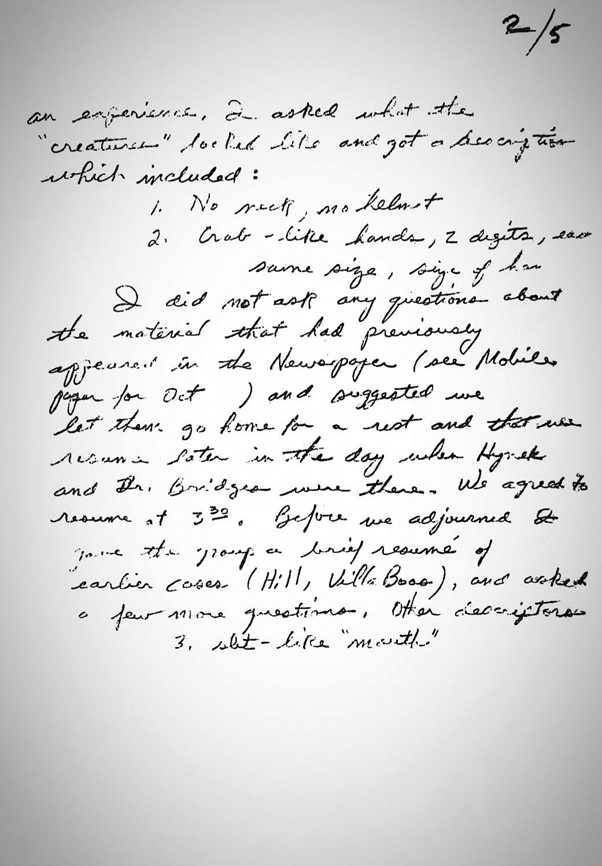 2/5
an experience. I asked what the
"creatures" looked like and got a description
which included:
1. No neck, no helmet
2. Crab-like hands, 2 digits, each
same size, size of
I did not ask any questions about
the material that had previously
appeared in the Newspaper (see Mobile
paper for Oct ) and suggested we
let them go home for a rest and that we
resume later in the day when Hynek
and Dr. Bridges were there. We agreed to
resume at 3 30. Before we adjourned I
gave the group a brief resumé of
earlier cases (Hill, Villa Boas), and asked
a few more questions. Other descriptors
3. slit-like "mouth"